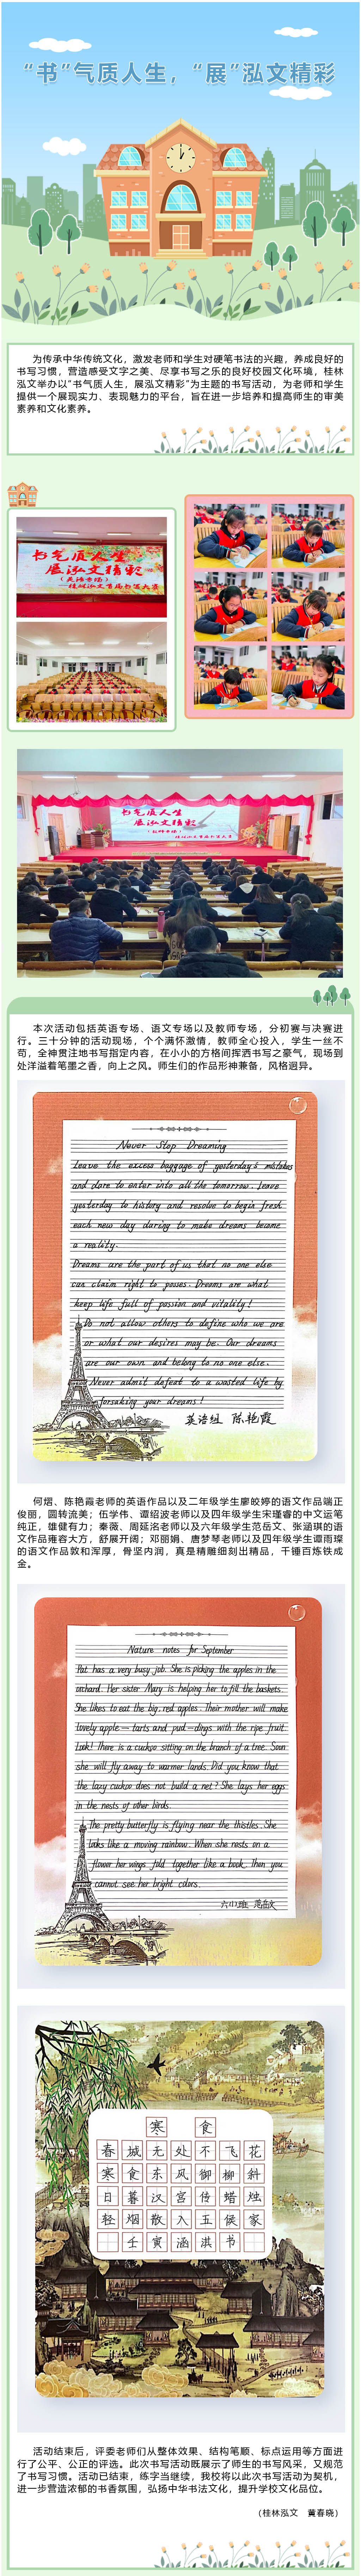 “书”气质人生，“展”泓文精彩
为传承中华传统文化，激发老师和学生对硬笔书法的兴趣，养成良好的
书写习惯，营造感受文字之美、尽享书写之乐的良好校园文化环境，桂林
泓文举办以“书气质人生，展泓文精彩”为主题的书写活动，为老师和学生
提供一个展现实力、表现魅力的平台，旨在进一步培养和提高师生的审美
素养和文化素养。
书气质人生
展泓文精彩
（英语专场）
——桂林泓文首届书写大赛
书气质人生
展泓文精彩
（教师专场）
——桂林泓文首届书写大赛
本次活动包括英语专场、语文专场以及教师专场，分初赛与决赛进
行。三十分钟的活动现场，个个满怀激情，教师全心投入，学生一丝不
苟，全神贯注地书写指定内容，在小小的方格间挥洒书写之豪气，现场到
处洋溢着笔墨之香，向上之风。师生们的作品形神兼备，风格迥异。
Never Stop Dreaming
Leave the excess baggage of yesterday's mistakes
and dare to enter into all the tomorrow. Leave
yesterday to history and resolve to begin fresh
each new day daring to make dreams become
a reality.
Dreams are the part of us that no one else
can claim right to posses. Dreams are what
keep life full of passion and vitality!
Do not allow others to define who we are
or what our desires may be. Our dreams
are our own and belong to no one else.
Never admit defeat to a wasted life by
forsaking your dreams!
英语组 陈艳霞
何熠、陈艳霞老师的英语作品以及二年级学生廖皎婷的语文作品端正
俊丽，圆转流美；伍学伟、谭绍波老师以及四年级学生宋瑾睿的中文运笔
纯正，雄健有力；秦薇、周延洺老师以及六年级学生范岳文、张涵琪的语
文作品雍容大方，舒展开阔；邓丽娟、唐梦琴老师以及四年级学生谭雨璨
的语文作品敦和浑厚，骨坚内润，真是精雕细刻出精品，千锤百炼铁成
金。
Nature notes for September
Pat has a very busy job. She is picking the apples in the
orchard. Her sister Mary is helping her to fill the baskets.
She likes to eat the big, red apples. Their mother will make
lovely apple-tarts and pud-dings with the ripe fruit.
Look! There is a cuckoo sitting on the branch of a tree. Soon
she will fly away to warmer lands. Did you know that
the lazy cuckoo does not build a net? She lays her eggs
in the nests of other birds.
The pretty butterfly is flying near the thistles. She
looks like a moving rainbow. When she rests on a
flower her wings fold together like a book. Then you
cannot see her bright colors.
六(1)班 范岳文
寒食
春城无处不飞花
寒食东风御柳斜
日暮汉宫传蜡烛
轻烟散入五侯家
壬寅涵淇书
活动结束后，评委老师们从整体效果、结构笔顺、标点运用等方面进
行了公平、公正的评选。此次书写活动既展示了师生的书写风采，又规范
了书写习惯。活动已结束，练字当继续，我校将以此次书写活动为契机，
进一步营造浓郁的书香氛围，弘扬中华书法文化，提升学校文化品位。
（桂林泓文 黄春晓）